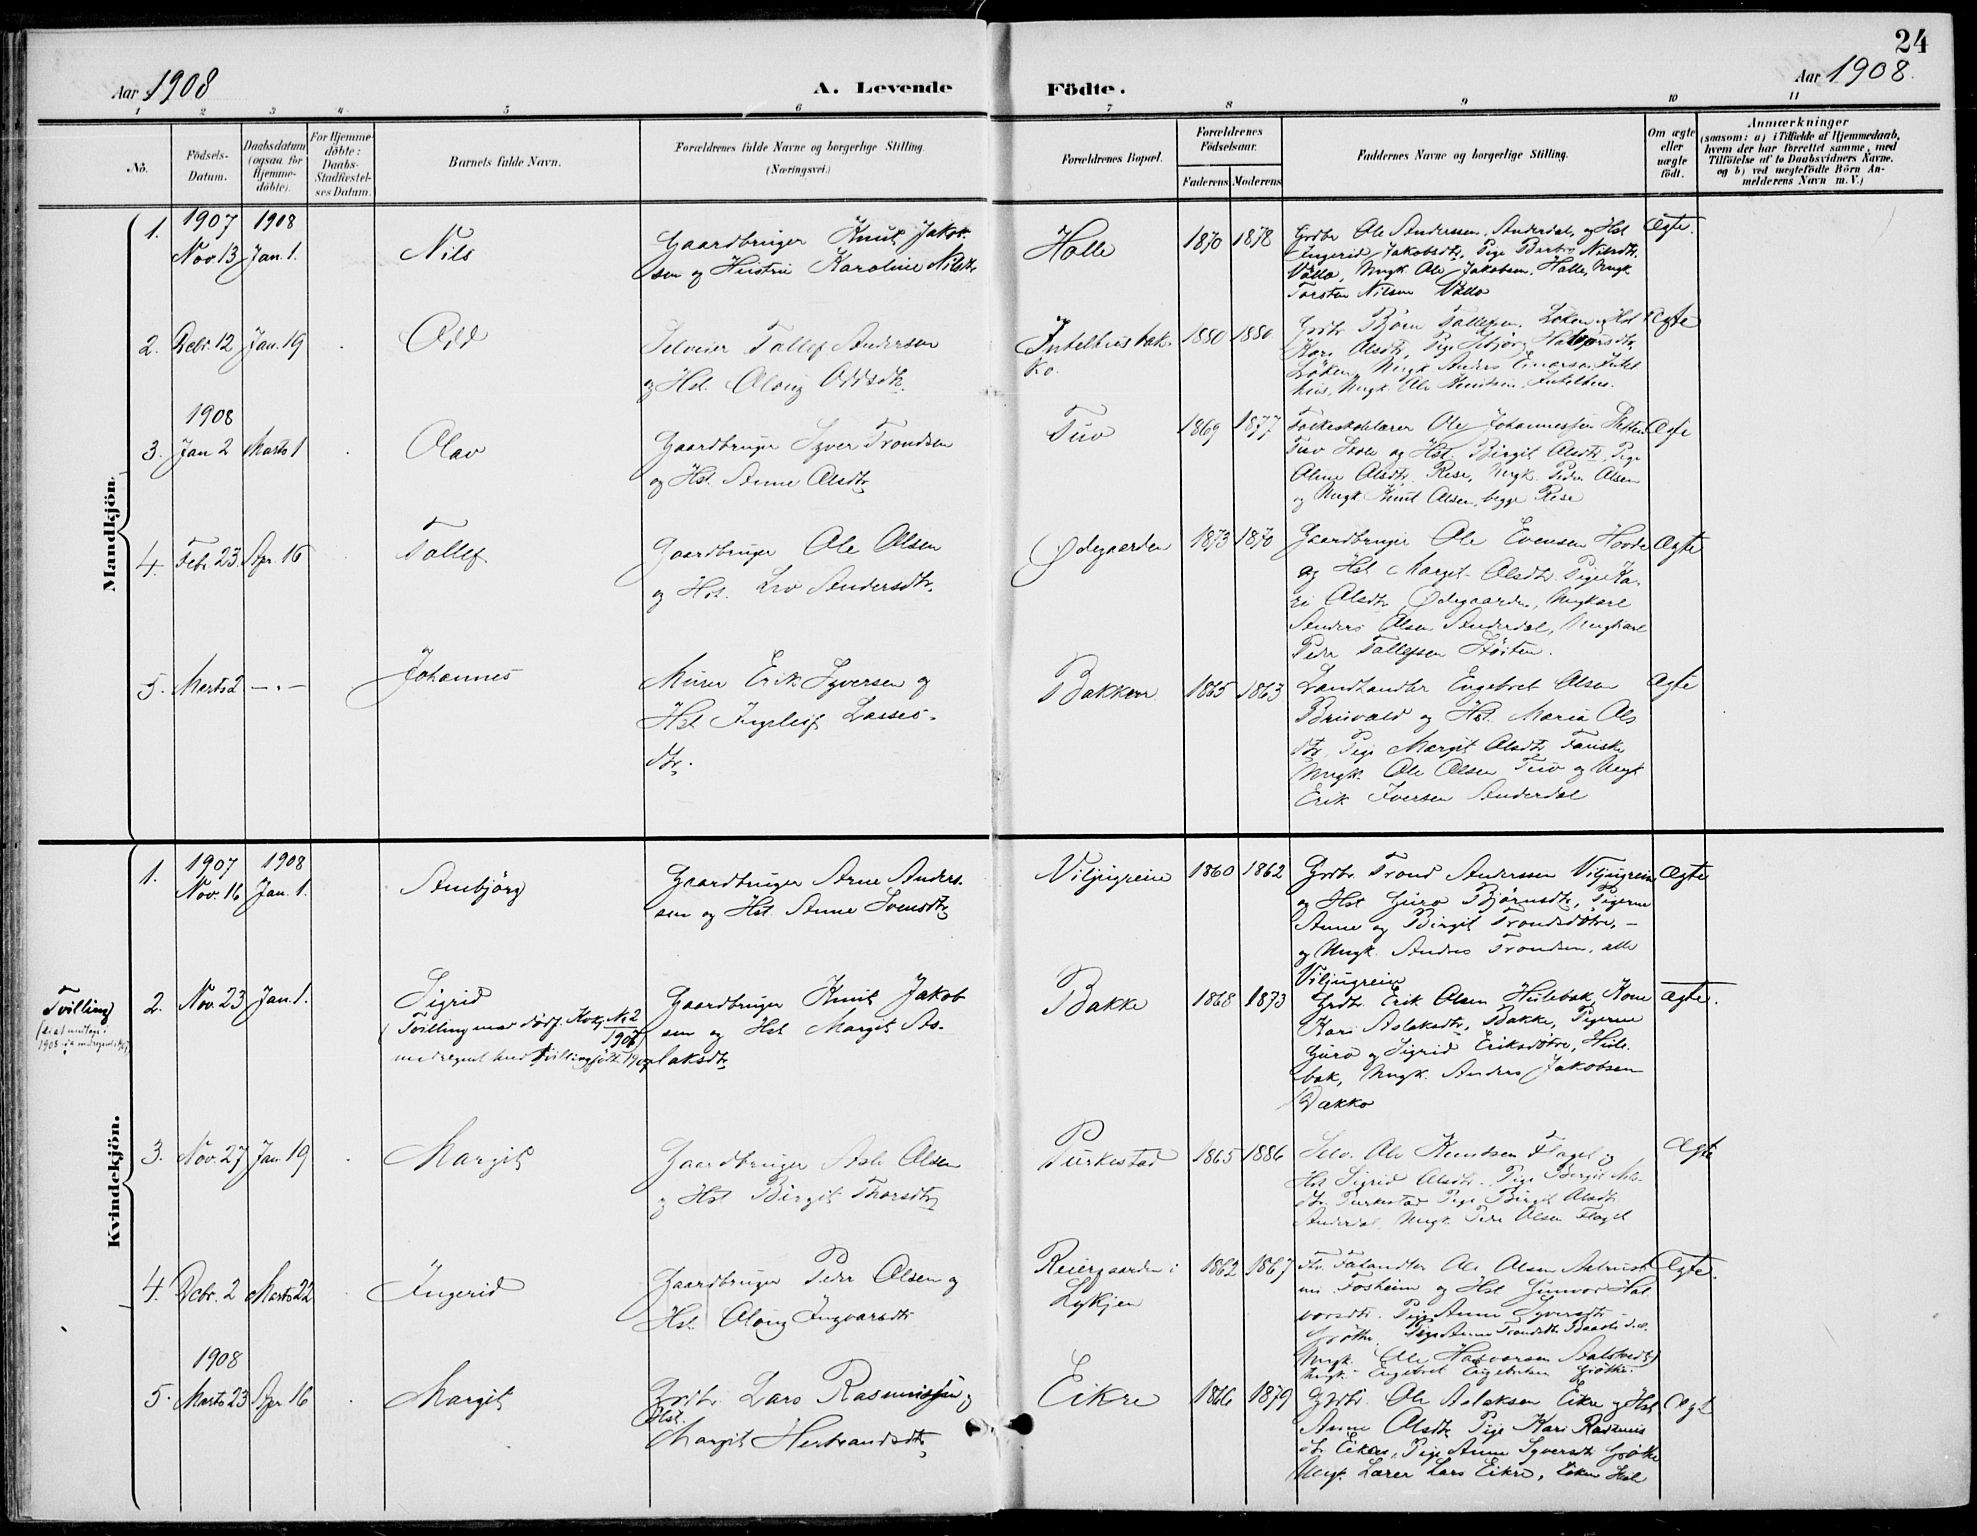 24
Aar 1908
A. Levende Födte.
Aar 1908.
1 2 3 4 5 6 7 8 9 10 11
No.
Födsels-
Datum.
Daabsdatum
(ogsaa for
Hjemme-
döbte).
For Hjemme-
döbte:
Daabs-
Stadfæstel-
ses Datum.
Barnets fulde Navn.
Forældrenes fulde Navne og borgerlige Stilling.
(Næringsvei.)
Forældrenes Bopæl.
Forældrenes
Födselsaar.
Faderens Moderens
Faddernes Navne og borgerlige Stilling.
Om ægte
eller
uægte
födt.
Anmærkninger
(saasom: a) i Tilfælde af Hjemmedaab,
hvem der har forrettet samme, med
Tilföielse af to Daabsvidners Navne.
og b) ved uægtefödte Börn An-
melderens Navn m. V.)
Mandkjön.
1. 1907 Nov. 13 1908 Jan. 1. Nils
Gaardbruger Knut Jakob-
sen og Hustru Karoline Nilsdtr
Halle 1870 1878
Grdbr Ole Andersen, Anderdal, og Hst
Ingerid Jakobsdtr, Pige Barbro Nilsdtr.
Vollo, Ungk. Ole Jakobsen, Halle, Ungk
Torsten Nilsen Vollo
Ægte.
2. Decbr. 12 Jan. 19 Odd
Selveier Tollef Andersen
og Hst. Oloug Oddsdtr.
Intelhusbak-
ko. 1880 1880
Grdbr. Björn Tollefsen. Löken og Hst
Kari Olsdtr,
Löken, Ungk Anders Einarsen Intel
hus, Ungk. Ole Knutsen, Intelhus.
Ægte
3. 1908 Jan 2 Marts 1 Olav
Gaardbruger Syver Trondsen
og Hst. Anne Olsdtr
Tuv 1869 1877
Folkeskolelærer Ole Johannessen
Tuv Skole og Hst. Birgit Olsdtr, Pige
Oline Olsdtr. Rese, Ungk. Peder Olsen
og Ungk Knut Olsen, begge Rese
Ægte
4. Feb. 23 Apr. 16 Tollef
Gaardbruger Ole Olsen
og Hst. Liv Andersdtr.
Ødegaarden 1873 1870
Gaardbruger Ole Evensen Hovde
og Hst Margit Olsdtr. Pige Ka-
ri Olsdtr Ødegaarden, Ungkarl
Anders Olsen Anderdal, Ungkarl
Peder Tollefsen Stöiten.
Ægte
5. Marts 2 — . — Johannes
Murer Erik Syversen og
Hst Ingeleif Lasses-
dtr.
Bakken 1865 1863
Landhandler Engebret Olsen
Brusvald og Hst. Maria Ols
dtr, Pige Margit Olsdtr Fauske
Ungk. Ole Olsen Tuv og Ungk
Erik Iversen Anderdal
Ægte
Kvindekjön.
1. 1907 Nov. 16 1908 Jan. 1. Ambjörg
Gaardbruger Arne Anders-
sen og Hst. Anne Svensdtr
Viljugrein 1860 1862
Grdbr. Trond Anderssen Viljugrein
og Hst Guro Björnsdtr, Pigerne
Anne og Birgit Trondsdötre, —
og Ungk. Anders Trondsen, alle
Viljugrein
Ægte
Tvilling
2. Nov. 23 Jan. 1. Sigrid
(Tvilling med dödf. Kvkj No 2
1907
medregnet med Tvillingfödte 1907
Gaardbruger Knut Jakob
sen og Hst Margit As-
laksdtr
Bakke 1868 1873
Grdbr. Erik Olsen Hulebak, Kone
Kari Aslaksdtr, Bakke, Pigerne
Guro og Sigrid Eriksdötre, Hule-
bak, Ungk. Anders Jakobsen
Dækko
Ægte.
3. Nov. 27 Jan 19 Margit
Gaardbruger Asle Olsen
og Hst Birgit Thorsdtr
Purkestad 1865 1886
Selv. Ole Knudsen Flaget og
Hst Sigrid Olsdtr. Pige Birgit Nils-
dtr. Purkestad Pige Birgit Olsdtr
Anderdal. Ungk. Peder Olsen Flaget
Ægte
4. Dcbr. 2 Marts 22 Ingerid
Gaardbruger Peder Olsen og
Hst. Oloug Ingvarsdtr
Reiergaarden i
Lykkjen 1862 1867
Ole Olsen
Fosheim og Hst Gunvor Hal
vorsdtr. Pige Anne Syversdtr
Grötte, Pige Anne Trondsdtr
Ungk. Ole Halvorsen
Ungk. Engebret Engebretsen Grötte.
Ægte.
5. 1908 Marts 23 Apr 16 Margit
Grdbr Lars Rasmussen og
Hst.
Margit Herbrandsdtr
Eikre 1866 1879
Grdbr. Ole Aslaksen Eikre og Hst
Anne Olsdtr Pige Kari Rasmus
dtr. Eikre, Pige Anne Syversdtr Grötte
Ungk. Lærer Lars Eikre,
Ægte